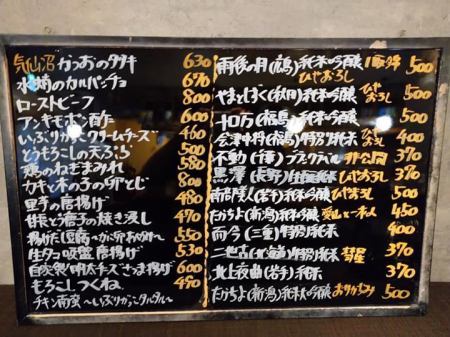 気仙沼 かつおのタタキ 630
水蛸のカルパッチョ 670
ローストビーフ 800
アンキモポン酢 600
いぶりがっこクリームチーズ
とうもろこしの天ぷら 500
鶏のねぎまみれ 580
カキと木の子の卵とじ 800
里子の唐揚げ 480
甘長と茄子の焼き浸し 470
揚げだし豆腐〜かに卵あんかけ〜 550
生タコ吸盤唐揚げ 530
自家製明太チーズさつま揚げ 600
もろこしつくね 490
チキン南蛮〜いぶりがっこタルタル〜
雨後の月(広島)純米吟醸 ひやおろし 500
やまとしずく(秋田)純米吟醸 ひやおろし 500
十ロ万(福島)純米吟醸 ひやおろし 500
会津中将(福島)特別純米 400
不動(千葉)ブラックラベル 非公開 370
黒澤(長野) ひやおろし 370
南部美人(岩手)純米吟醸 ひやおろし 500
たかちよ(新潟)純米吟醸 愛山 450
而今(三重)特別純米 400
二世古(北海道)特別純米 彗星 370
北上夜曲(岩手)純米 370
たかちよ(新潟)純米大吟醸 おりがらみ 500